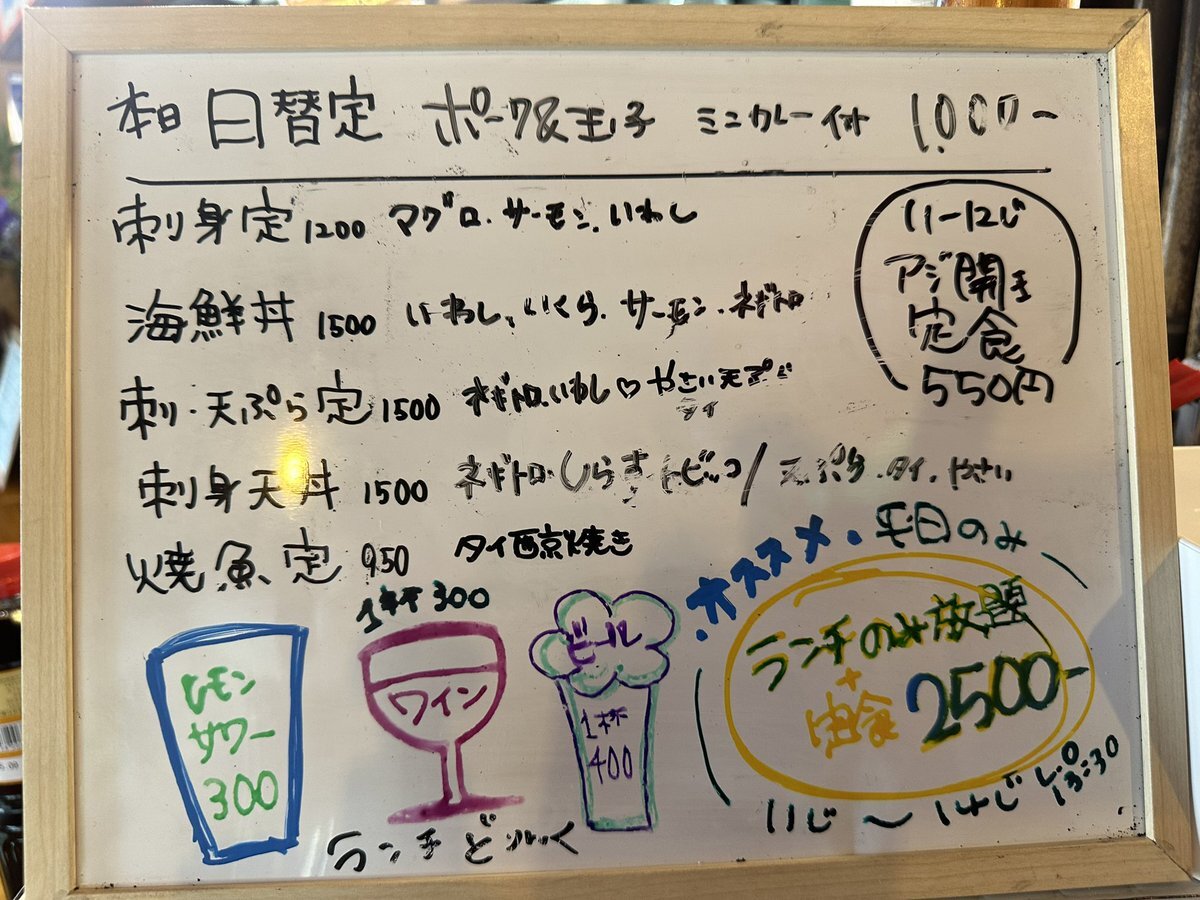 本日 日替定 ポーク&玉子 ミニカレー付 1,000-
刺身定 1200 マグロ.サーモン.いわし
海鮮丼 1500 いわし、いくら.サーモン.ネギトロ
刺.天ぷら定 1500 ネギトロ.いわし♡やさい天ぷら
タイ
刺身天丼 1500 ネギトロ.しらす.トビッコ/天ぷら.タイ.やさい
焼魚定 950 タイ西京焼き
11-12じ
アジ開き
定食
550円
レモン
サワー
300
1杯300
ワイン
ビール
1杯
400
ランチどりんく
.オススメ.平日のみ
ランチのみ放題
+
定食 2500-
11じ〜14じ L.O 13:30